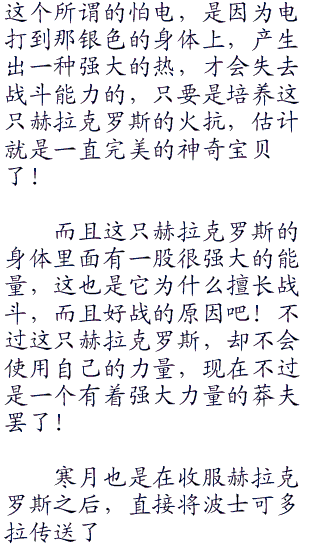 这个所谓的怕电，是因为电
打到那银色的身体上，产生
出一种强大的热，才会失去
战斗能力的，只要是培养这
只赫拉克罗斯的火抗，估计
就是一直完美的神奇宝贝
了！
而且这只赫拉克罗斯的
身体里面有一股很强大的能
量，这也是它为什么擅长战
斗，而且好战的原因吧！不
过这只赫拉克罗斯，却不会
使用自己的力量，现在不过
是一个有着强大力量的莽夫
罢了！
寒月也是在收服赫拉克
罗斯之后，直接将波士可多
拉传送了